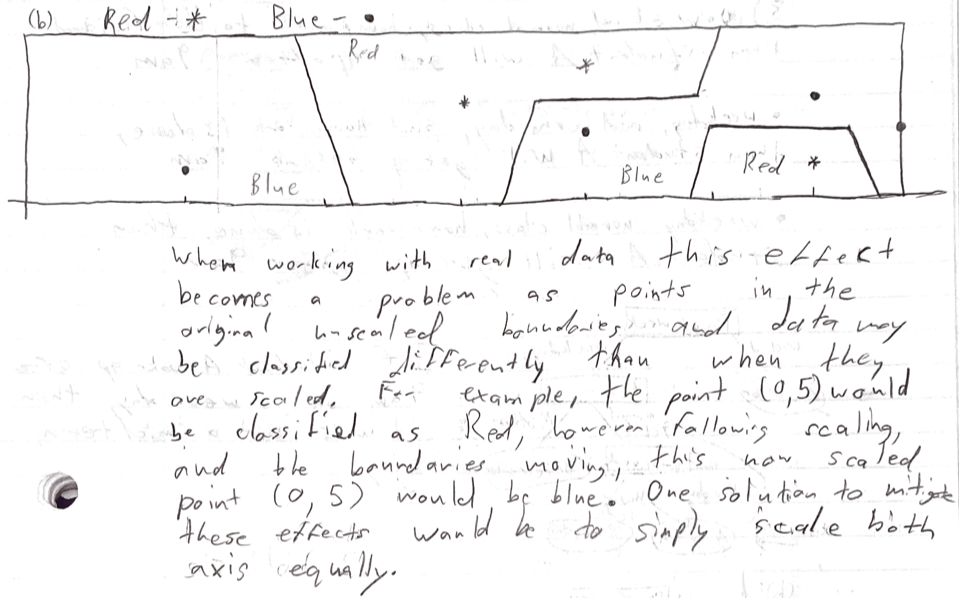 (b) Red - * Blue - •
Red
Blue
Blue
Red *
When working with real data this effect
becomes a problem as points in the
original unscaled boundaries and data may
be classified differently than when they
are scaled. For example, the point (0,5) would
be classified as Red, however following scaling,
and the boundaries moving, this now scaled
point (0, 5) would be blue. One solution to mitigate
these effects would be to simply scale both
axis equally.